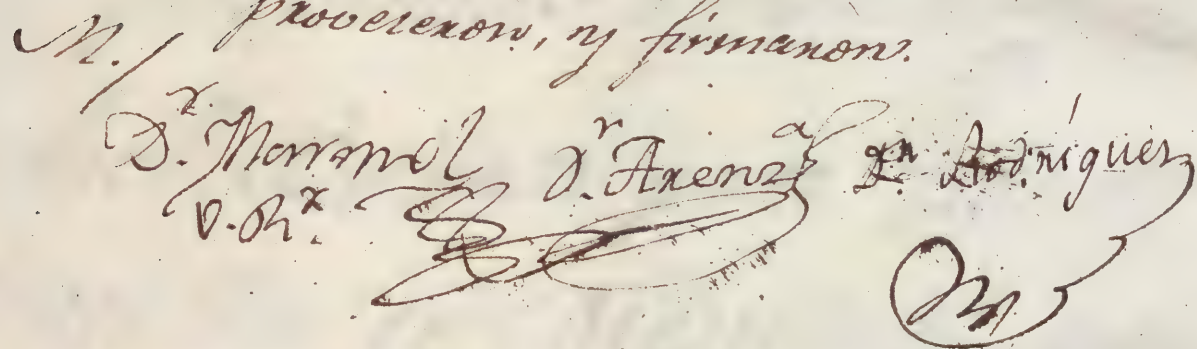 M./ proveieron, y firmaron.
D.r Marmol D.r Arenz.a Rodriguez
V. R.r